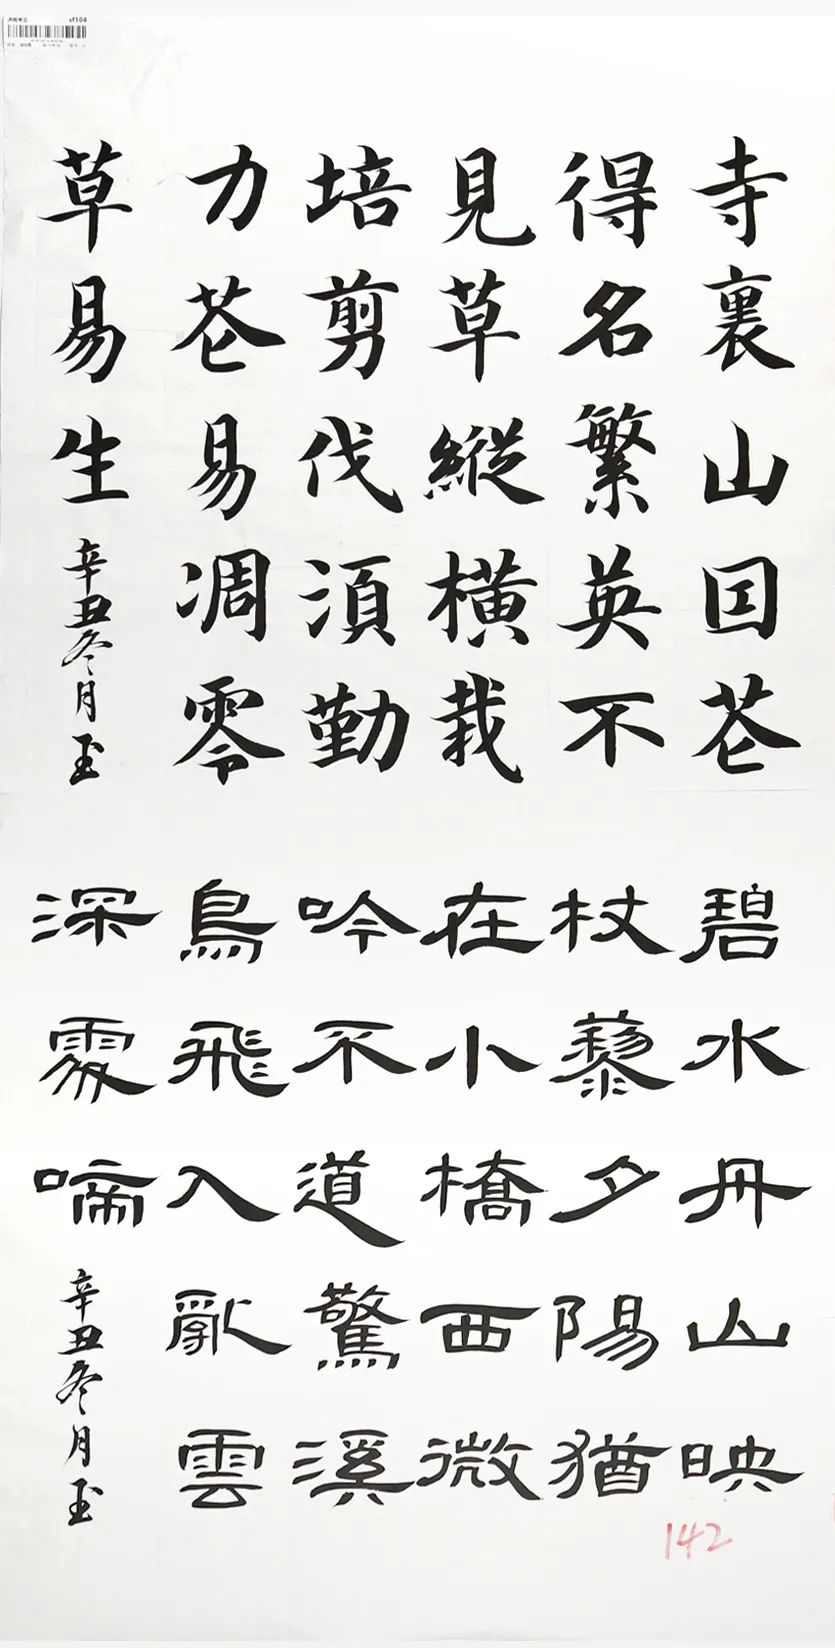 sf104
寺裏山因花
得名繁英不
見草縱橫栽
培剪伐須勤
力花易凋零
草易生
辛丑冬月玉
碧水丹山映
杖藜夕陽猶
在小橋西微
吟不道驚溪
鳥飛入亂雲
深處啼
辛丑冬月玉
142